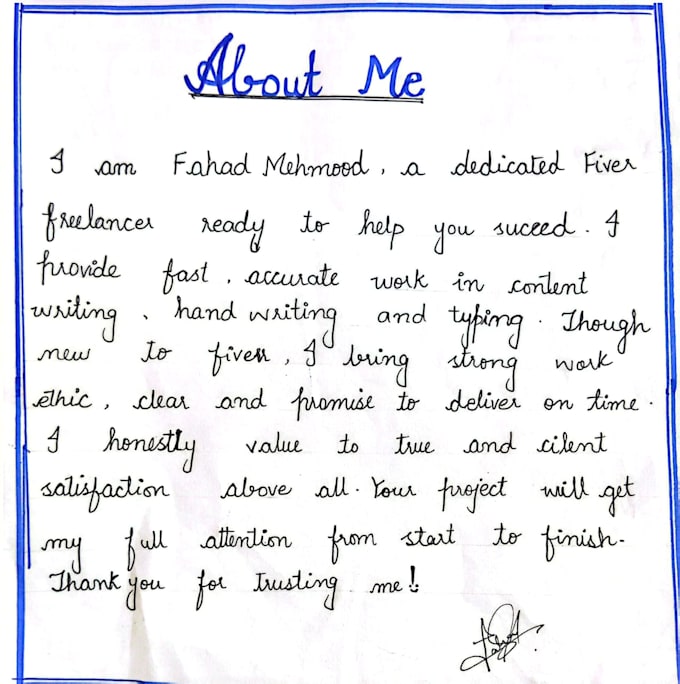 About Me
I am Fahad Mehmood, a dedicated Fiver
freelancer ready to help you suceed. I
provide fast, accurate work in content
writing, hand writing and typing. Though
new to fiver, I bring strong work
ethic, clear and promise to deliver on time.
I honestly value to true and cilent
satisfaction above all. Your project will get
my full attention from start to finish.
Thank you for trusting me!